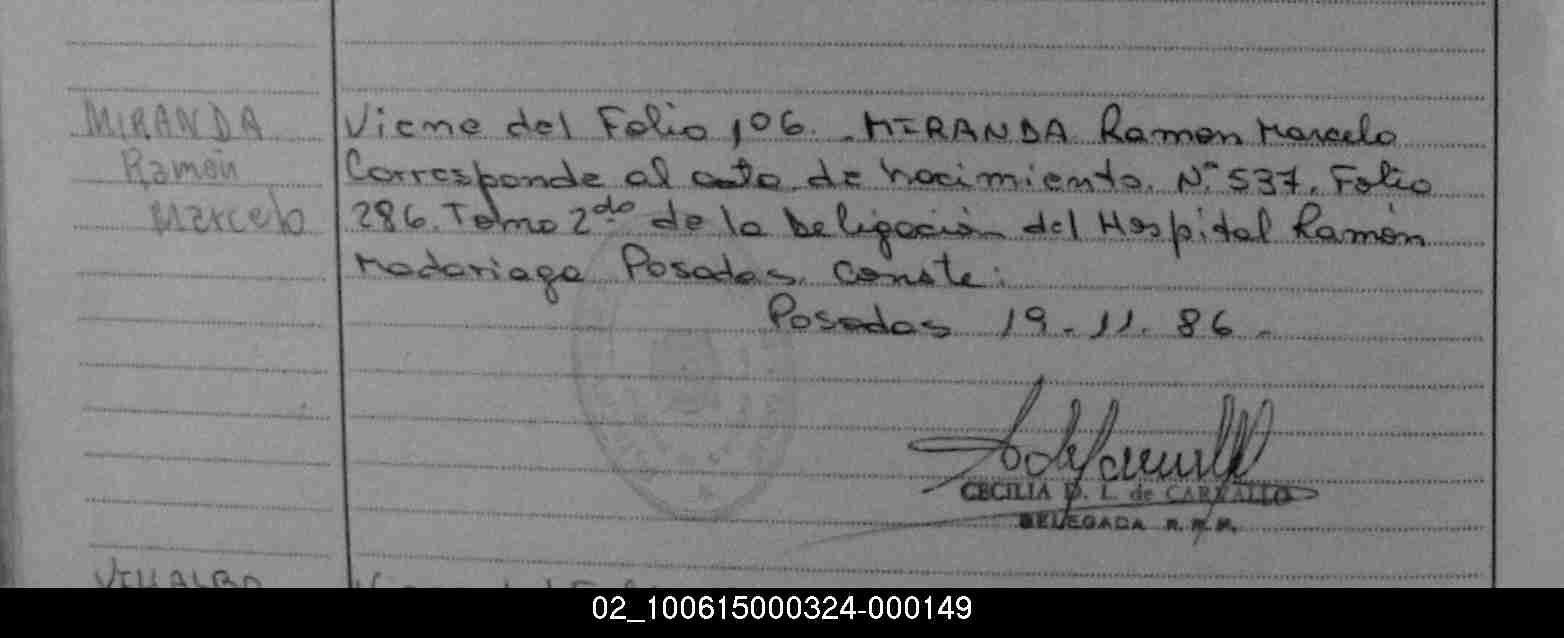 MIRANDA
Ramón
Marcelo
Viene del Folio 106. MIRANDA Ramon Marcelo
Corresponde al acta de nacimiento. N° 537. Folio
286. Tomo 2do de la Deligación del Hospital Ramón
Madariaga Posadas. Conste:
Posadas 19.11.86.
CECILIA D. L. de CARVALLO
DELEGADA R. P.
VILLALBA
02_100615000324-000149